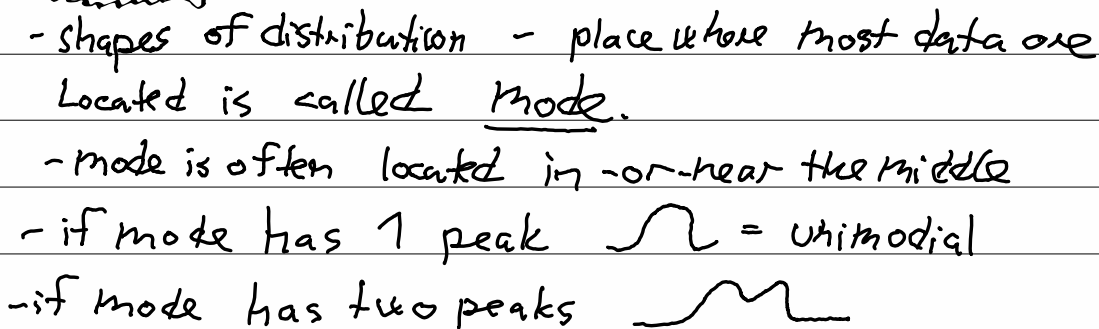 - shapes of distribution - place where most data are
Located is called mode.
- mode is often located in -or-near the middle
- if mode has 1 peak = unimodial
- if mode has two peaks